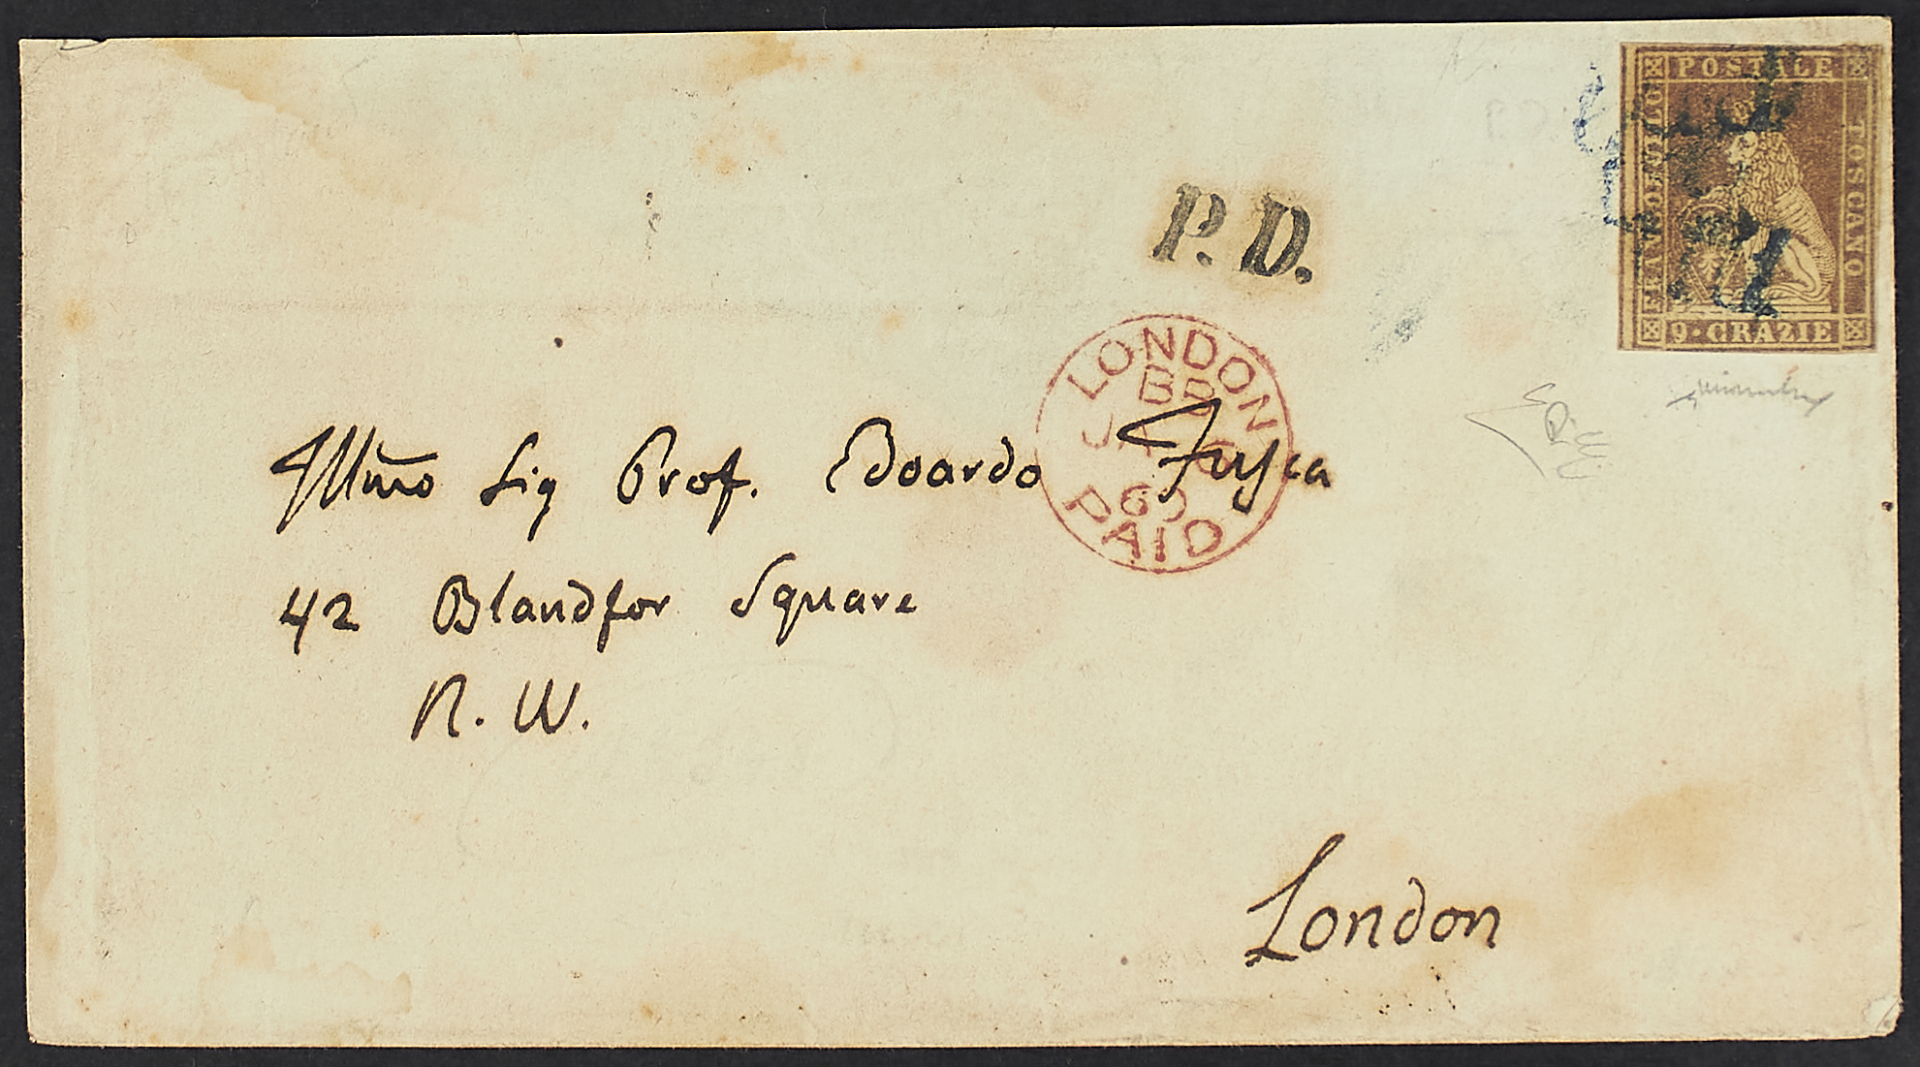 FRANCOBOLLO
POSTALE
TOSCANO
9 · CRAZIE
P. D.
LONDON
60
PAID
Illmo Sig Prof. Edoardo Fusca
42 Blandfor Square
N. W.
London